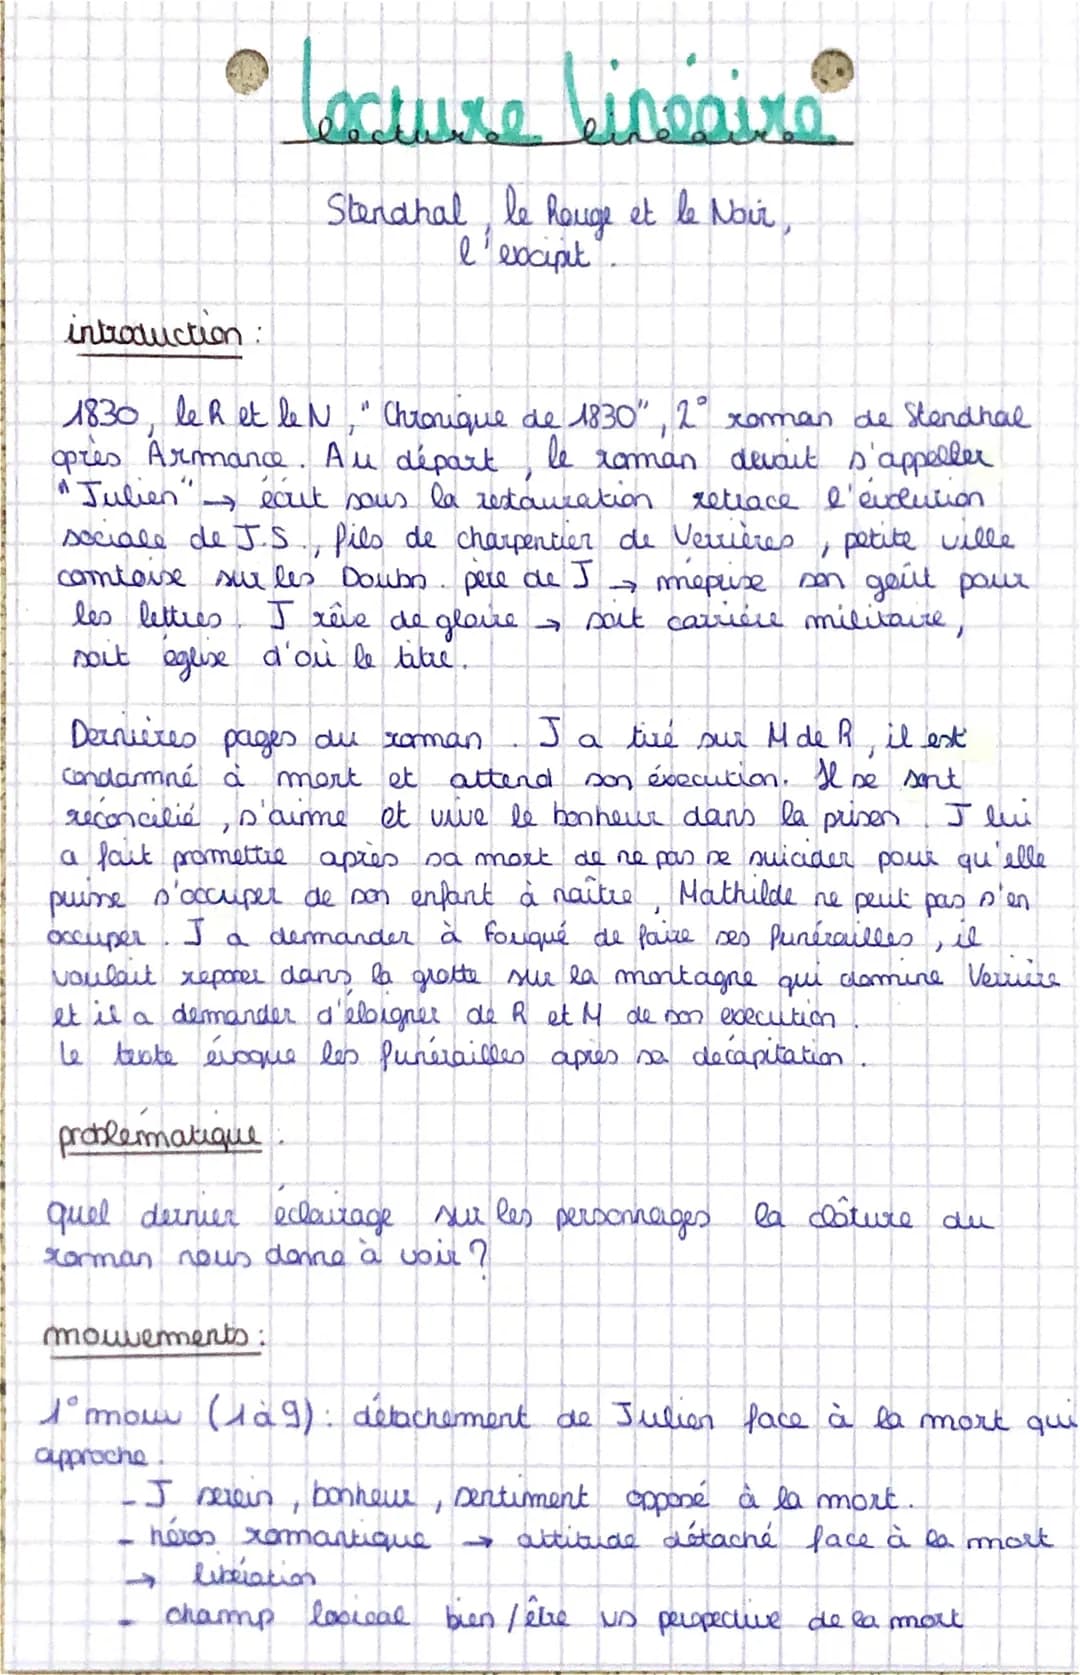 Lecture linéaire
lecture linéaire
Stendhal, le Rouge et le Noir,
l'excipit.
introduction :
1830, le R et le N, "Chronique de 1830", 2° roman de Stendhal
après Armance. Au départ, le roman devait s'appeller
"Julien" → écrit sous la restauration retrace l'évolution
sociale de J.S., fils de charpentier de Verrières, petite ville
comtoise sur les Doubs. père de J → méprise son goût pour
les lettres. J rêve de gloire → soit carrière militaire,
soit église d'où le titre.
Dernières pages du roman. J a tiré sur M de R, il est
condamné à mort et attend son éxecution. Il se sont
réconcilié, s'aime et vive le bonheur dans la prison. J lui
a fait promettre après sa mort de ne pas se suicider pour qu'elle
puisse s'occuper de son enfant à naître, Mathilde ne peut pas s'en
occuper. J a demander à Fouqué de faire ses funérailles, il
voulait reposer dans la grotte sur la montagne qui domine Verrière
et il a demander d'éloigner de R et M de son execution.
Le texte évoque les funérailles après sa décapitation.
problématique :
quel dernier éclairage sur les personnages la clôture du
roman nous donne à voir ?
mouvements :
1° mouv (1à9) : détachement de Julien face à la mort qui
approche.
- J serein, bonheur, sentiment opposé à la mort.
- héros romantique → attitude détaché face à la mort
→ libération
- champ lexical bien/être vs perspective de la mort